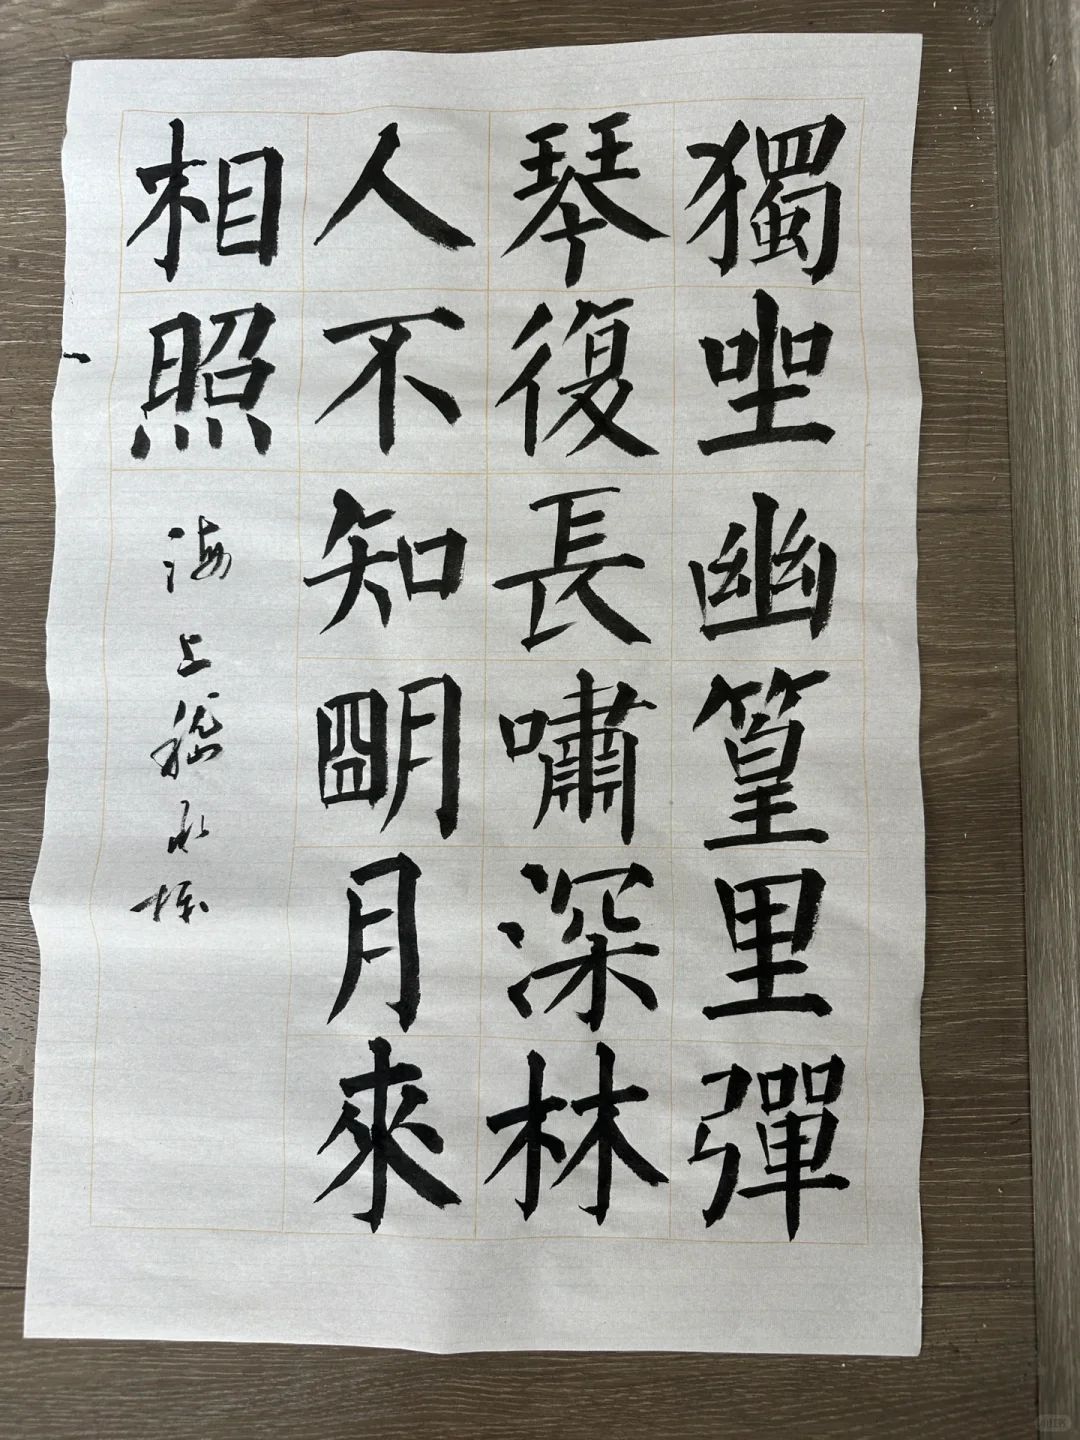 獨坐幽篁里彈
琴復長嘯深林
人不知朙月來
相照
海上